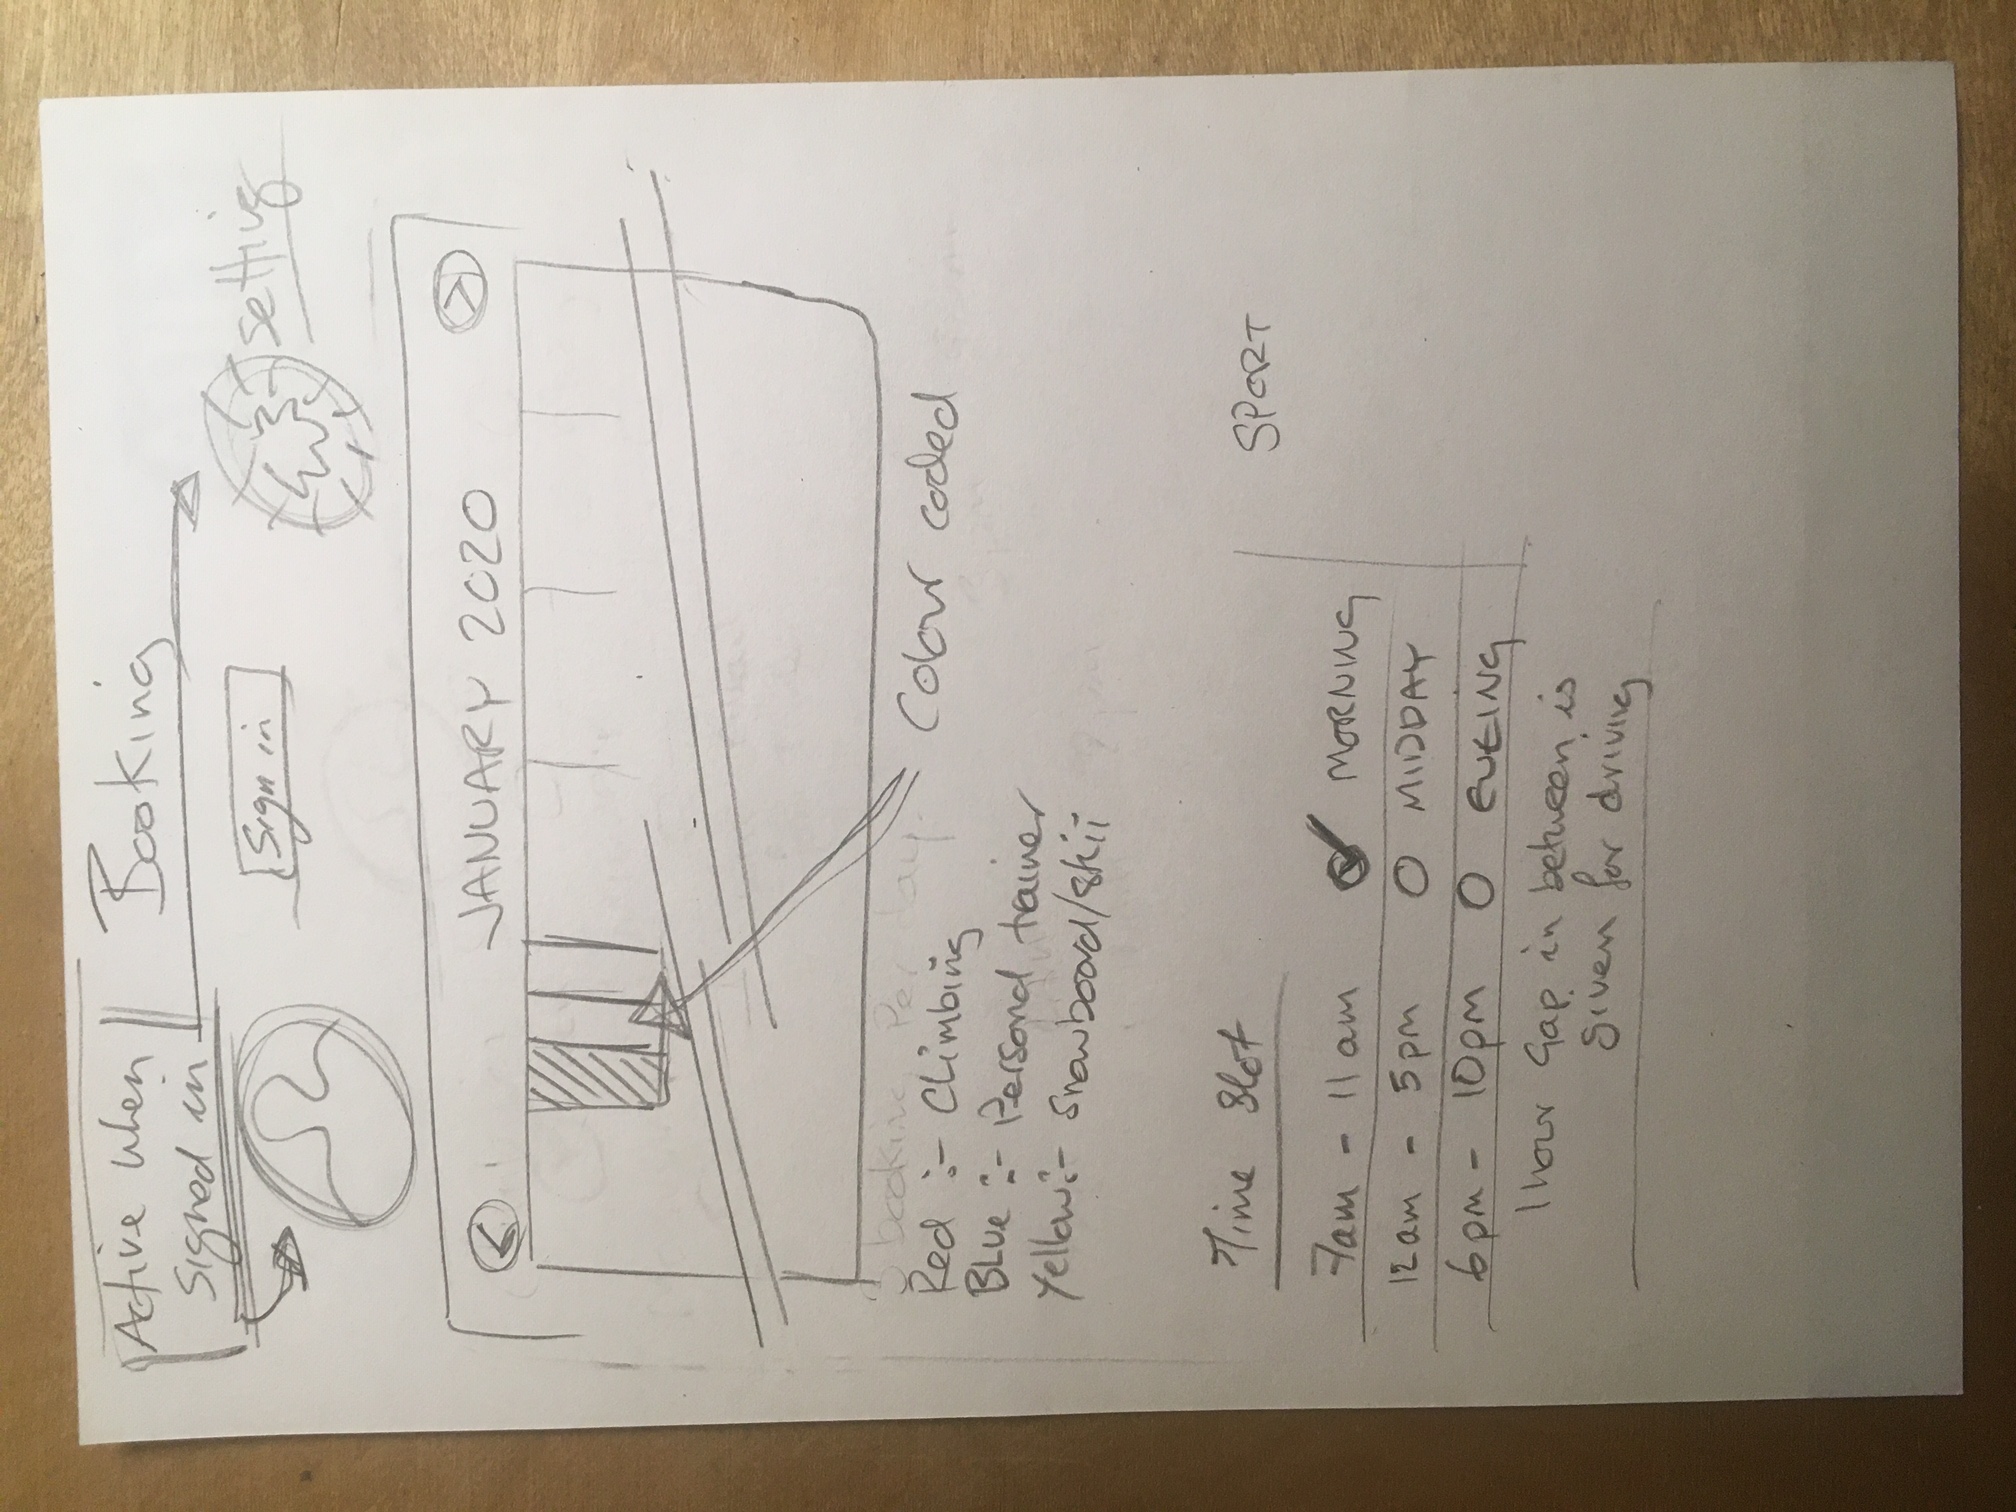 Active when
signed in
Booking
Sign in
setting
<
JANUARY 2020
>
3 booking Per day.
Colour coded
Red :- Climbing
BLue :- Personal trainer
Yellow:- Snowboard/skii
Time Slot
SPORT
7am - 11am MORNING
12am - 5pm MIDDAY
6pm - 10pm EVEING
1 hour Gap in between is
given for driving